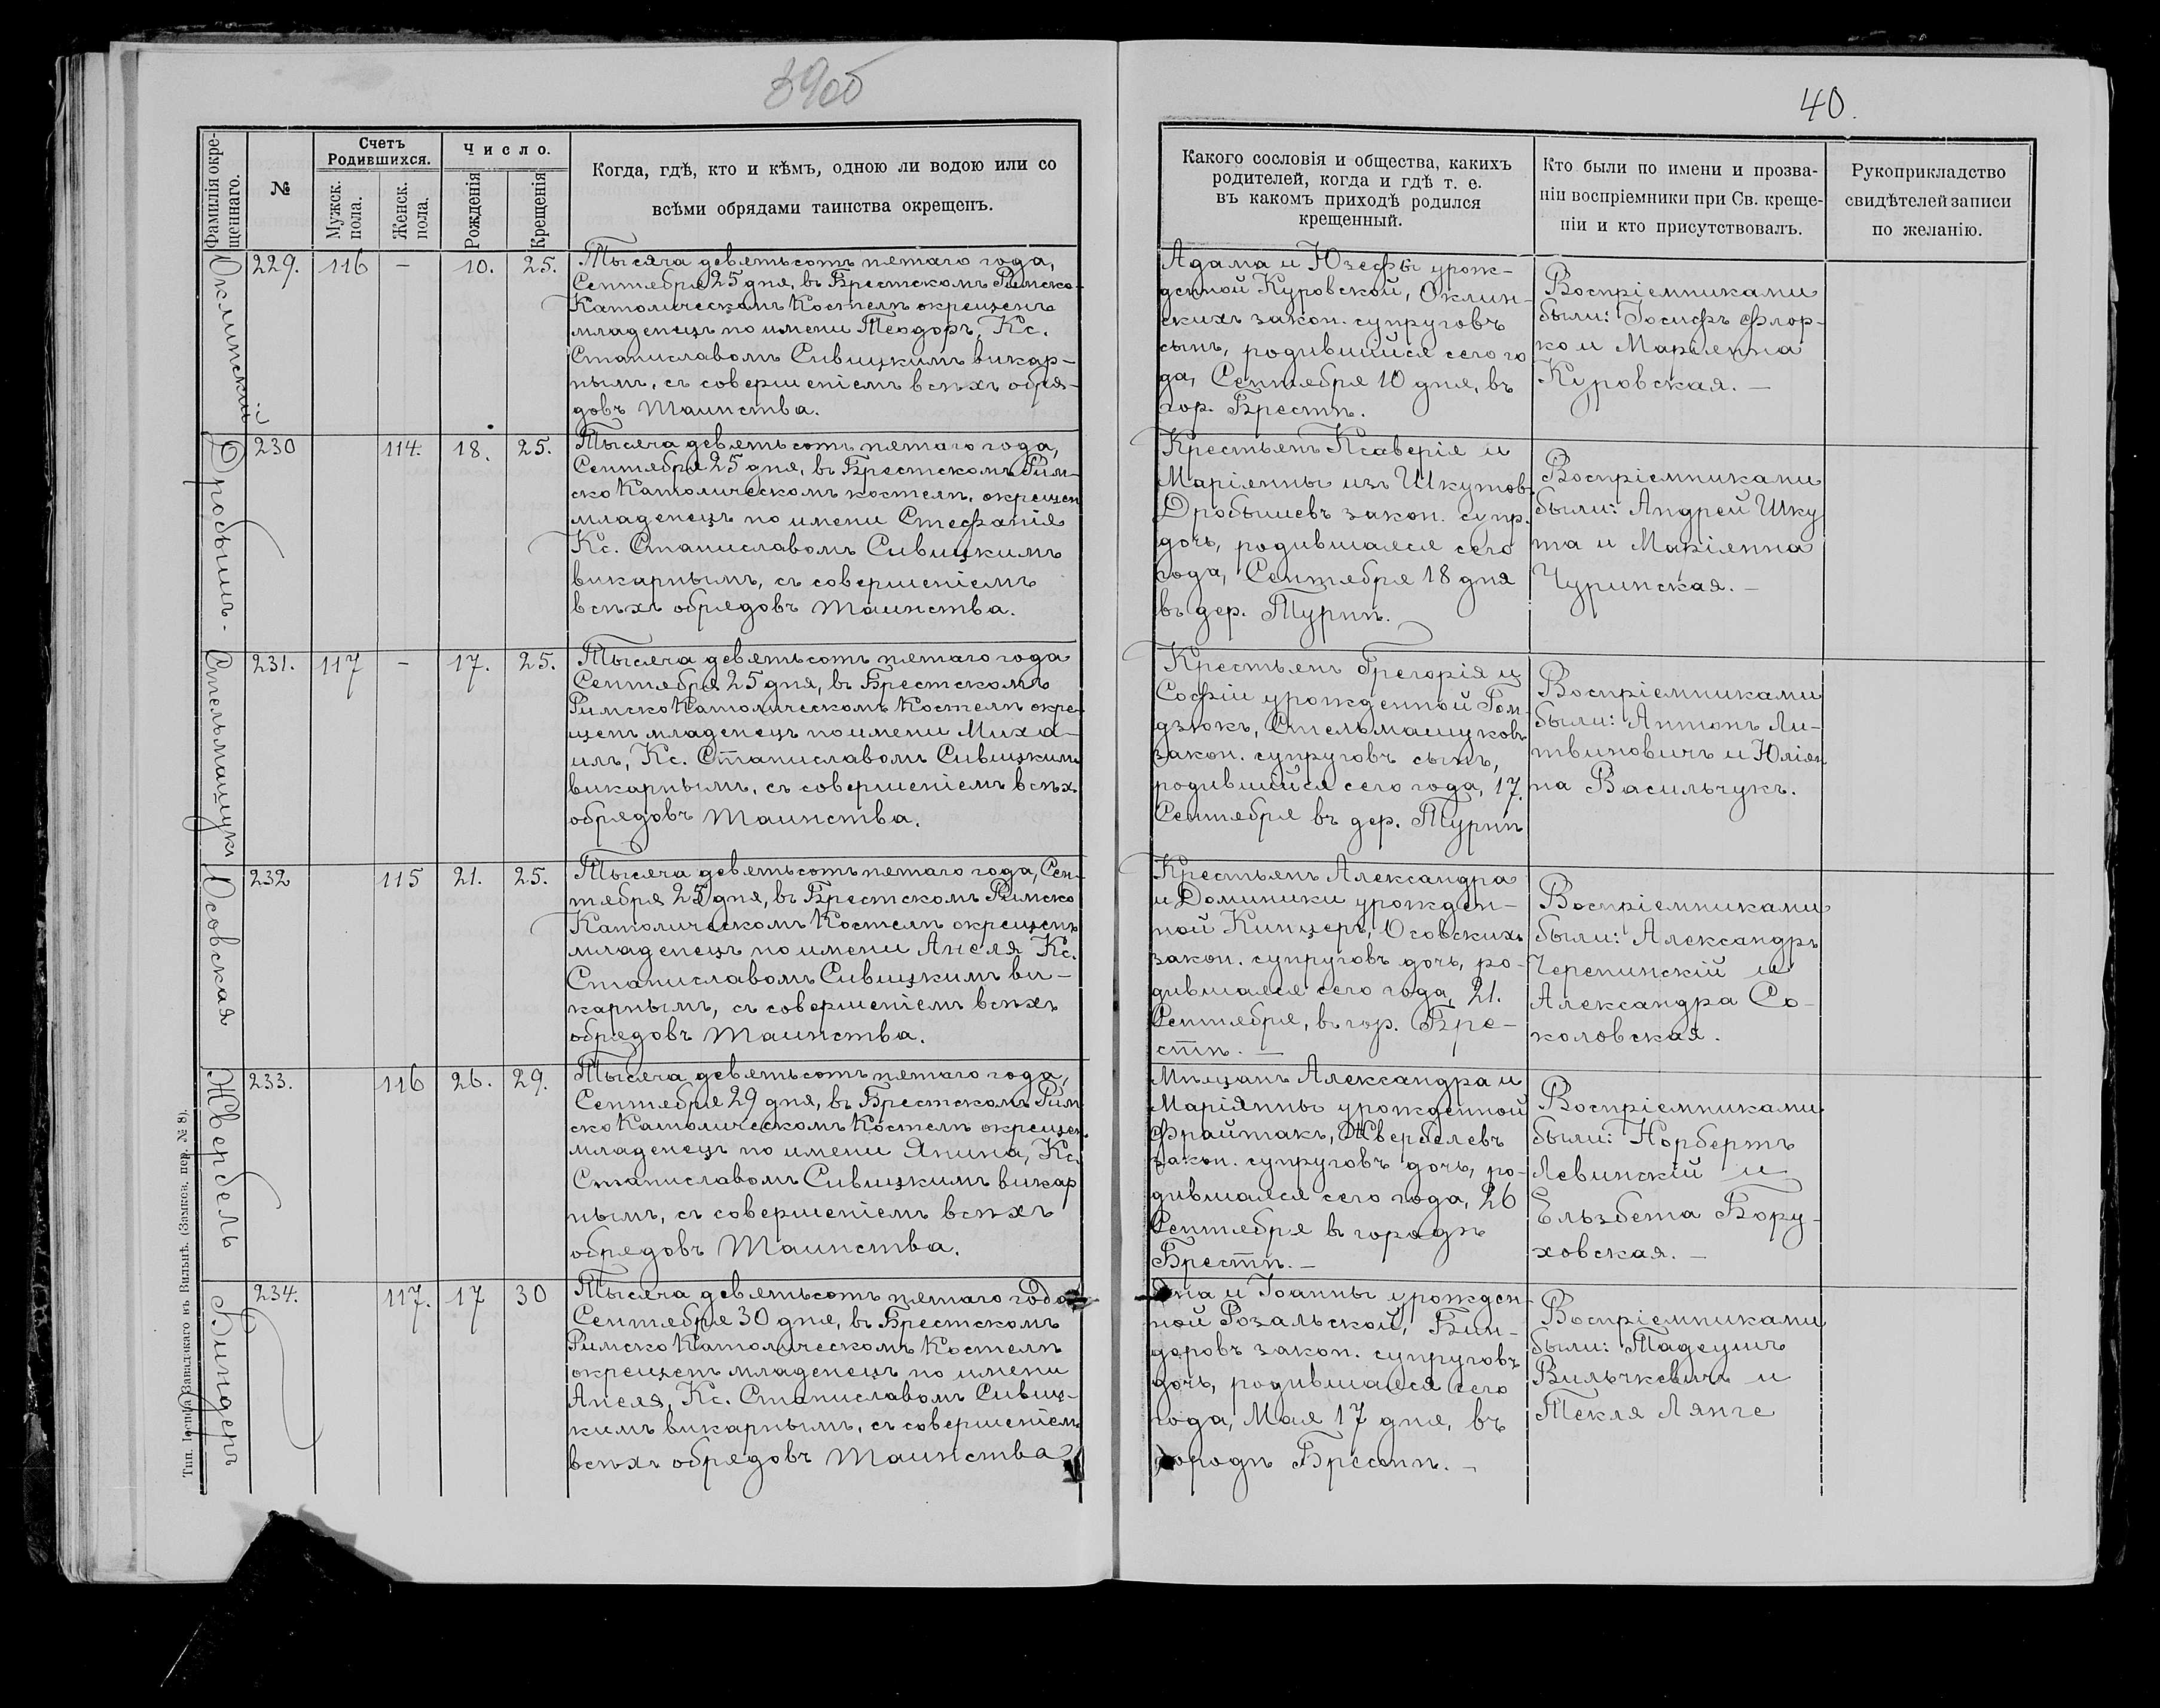 39об
40.
Фамилія окре-
щеннаго.
№
Счетъ
Родившихся.
Мужск.
пола.
Женск.
пола.
Число.
Рожденія
Крещенія
Когда, гдѣ, кто и кѣмъ, одною ли водою или со
всѣми обрядами таинства окрещенъ.
Какого сословія и общества, какихъ
родителей, когда и гдѣ т. е.
въ какомъ приходѣ родился
крещенный.
Кто были по имени и прозва-
ніи воспріемники при Св. креще-
ніи и кто присутствовалъ.
Рукоприкладство
свидѣтелей записи
по желанію.
Оклинскій
229. 116 – 10. 25.
Тысяча девятьсотъ пятаго года,
Сентября 25 дня, въ Брестскомъ Римско-
Католическомъ Костелѣ окрещенъ
младенецъ по имени Теодоръ, Кс.
Станиславомъ Сивицкимъ викар-
нымъ, съ совершеніемъ всѣхъ обря-
довъ Таинства.
Адама и Юзефы урож-
денной Куровской, Оклин-
скихъ закон. супруговъ
сынъ, родившійся сего го
да, Сентября 10 дня, въ
гор. Брестѣ.
Воспріемниками
были: Іосифъ Флор-
ко и Маріянна
Куровская. –
Дробышъ.
230 114. 18. 25.
Тысяча девятьсотъ пятаго года,
Сентября 25 дня, въ Брестскомъ Рим-
ско Католическомъ костелѣ, окрещен
младенецъ по имени Стефанія
Кс. Станиславомъ Сивицкимъ
викарнымъ, съ совершеніемъ
всѣхъ обрядовъ Таинства.
Крестьянъ Ксаверія и
Маріянны изъ Шкутовъ
Дробышевъ закон. супр.
дочь, родившаяся сего
года, Сентября 18 дня
въ дер. Турнѣ.
Воспріемниками
были: Андрей Шку
та и Маріянна
Чуринская. –
Стельмащукъ
231. 117 – 17. 25.
Тысяча девятьсотъ пятаго года
Сентября 25 дня, въ Брестскомъ
Римско Католическомъ Костелѣ окре-
щенъ младенецъ по имени Миха-
илъ, Кс. Станиславомъ Сивицкимъ
викарнымъ, съ совершеніемъ всѣхъ
обрядовъ Таинства.
Крестьянъ Грегорія и
Софіи урожденной Гон-
дзюкъ, Стельмащуковъ
закон. супруговъ сынъ,
родившійся сего года, 17.
Сентября въ дер. Турнѣ
Воспріемниками
были: Антонъ Ли-
твиновичъ и Юліян
на Васильчукъ.
Осовская
232 115 21. 25.
Тысяча девятьсотъ пятаго года, Сен-
тября 25 дня, въ Брестскомъ Римско
Католическомъ Костелѣ окрещенъ
младенецъ по имени Анеля Кс.
Станиславомъ Сивицкимъ ви-
карнымъ, съ совершеніемъ всѣхъ
обрядовъ Таинства.
Крестьянъ Александра
и Доминики урожден-
ной Кинцеръ, Осовскихъ
закон. супруговъ дочь, ро-
дившаяся сего года, 21.
Сентября, въ гор. Бре-
стѣ. –
Воспріемниками
были: Александръ
Черепинскій и
Александра Со-
коловская.
Жвербель
233. 116 26. 29.
Тысяча девятьсотъ пятаго года,
Сентября 29 дня, въ Брестскомъ Рим
ско Католическомъ Костелѣ окрещен
младенецъ по имени Янина, Кс.
Станиславомъ Сивицкимъ викар
нымъ, съ совершеніемъ всѣхъ
обрядовъ Таинства.
Мѣщанъ Александра и
Маріянны урожденной
Фрайтакъ, Жвербелевъ
закон. супруговъ дочь, ро-
дившаяся сего года, 26
Сентября въ городѣ
Брестѣ. –
Воспріемниками
были: Норбертъ
Левинскій и
Ельзбета Бору-
ховская. –
Биндеръ
234. 117. 17 30
Тысяча девятьсотъ пятаго года
Сентября 30 дня, въ Брестскомъ
Римско Католическомъ Костелѣ
окрещенъ младенецъ по имени
Анеля, Кс. Станиславомъ Сивиц-
кимъ викарнымъ, съ совершеніемъ
всѣхъ обрядовъ Таинства
и Іоанны урожден-
ной Розальской, Бин-
деровъ закон. супруговъ
дочь, родившаяся сего
года, Мая 17 дня, въ
городѣ Брестѣ. –
Воспріемниками
были: Тадеушъ
Вильчкевичъ и
Текля Лянге
Тип. Іосифа Завадзкаго въ Вильнѣ. (Замков. пер. № 8).